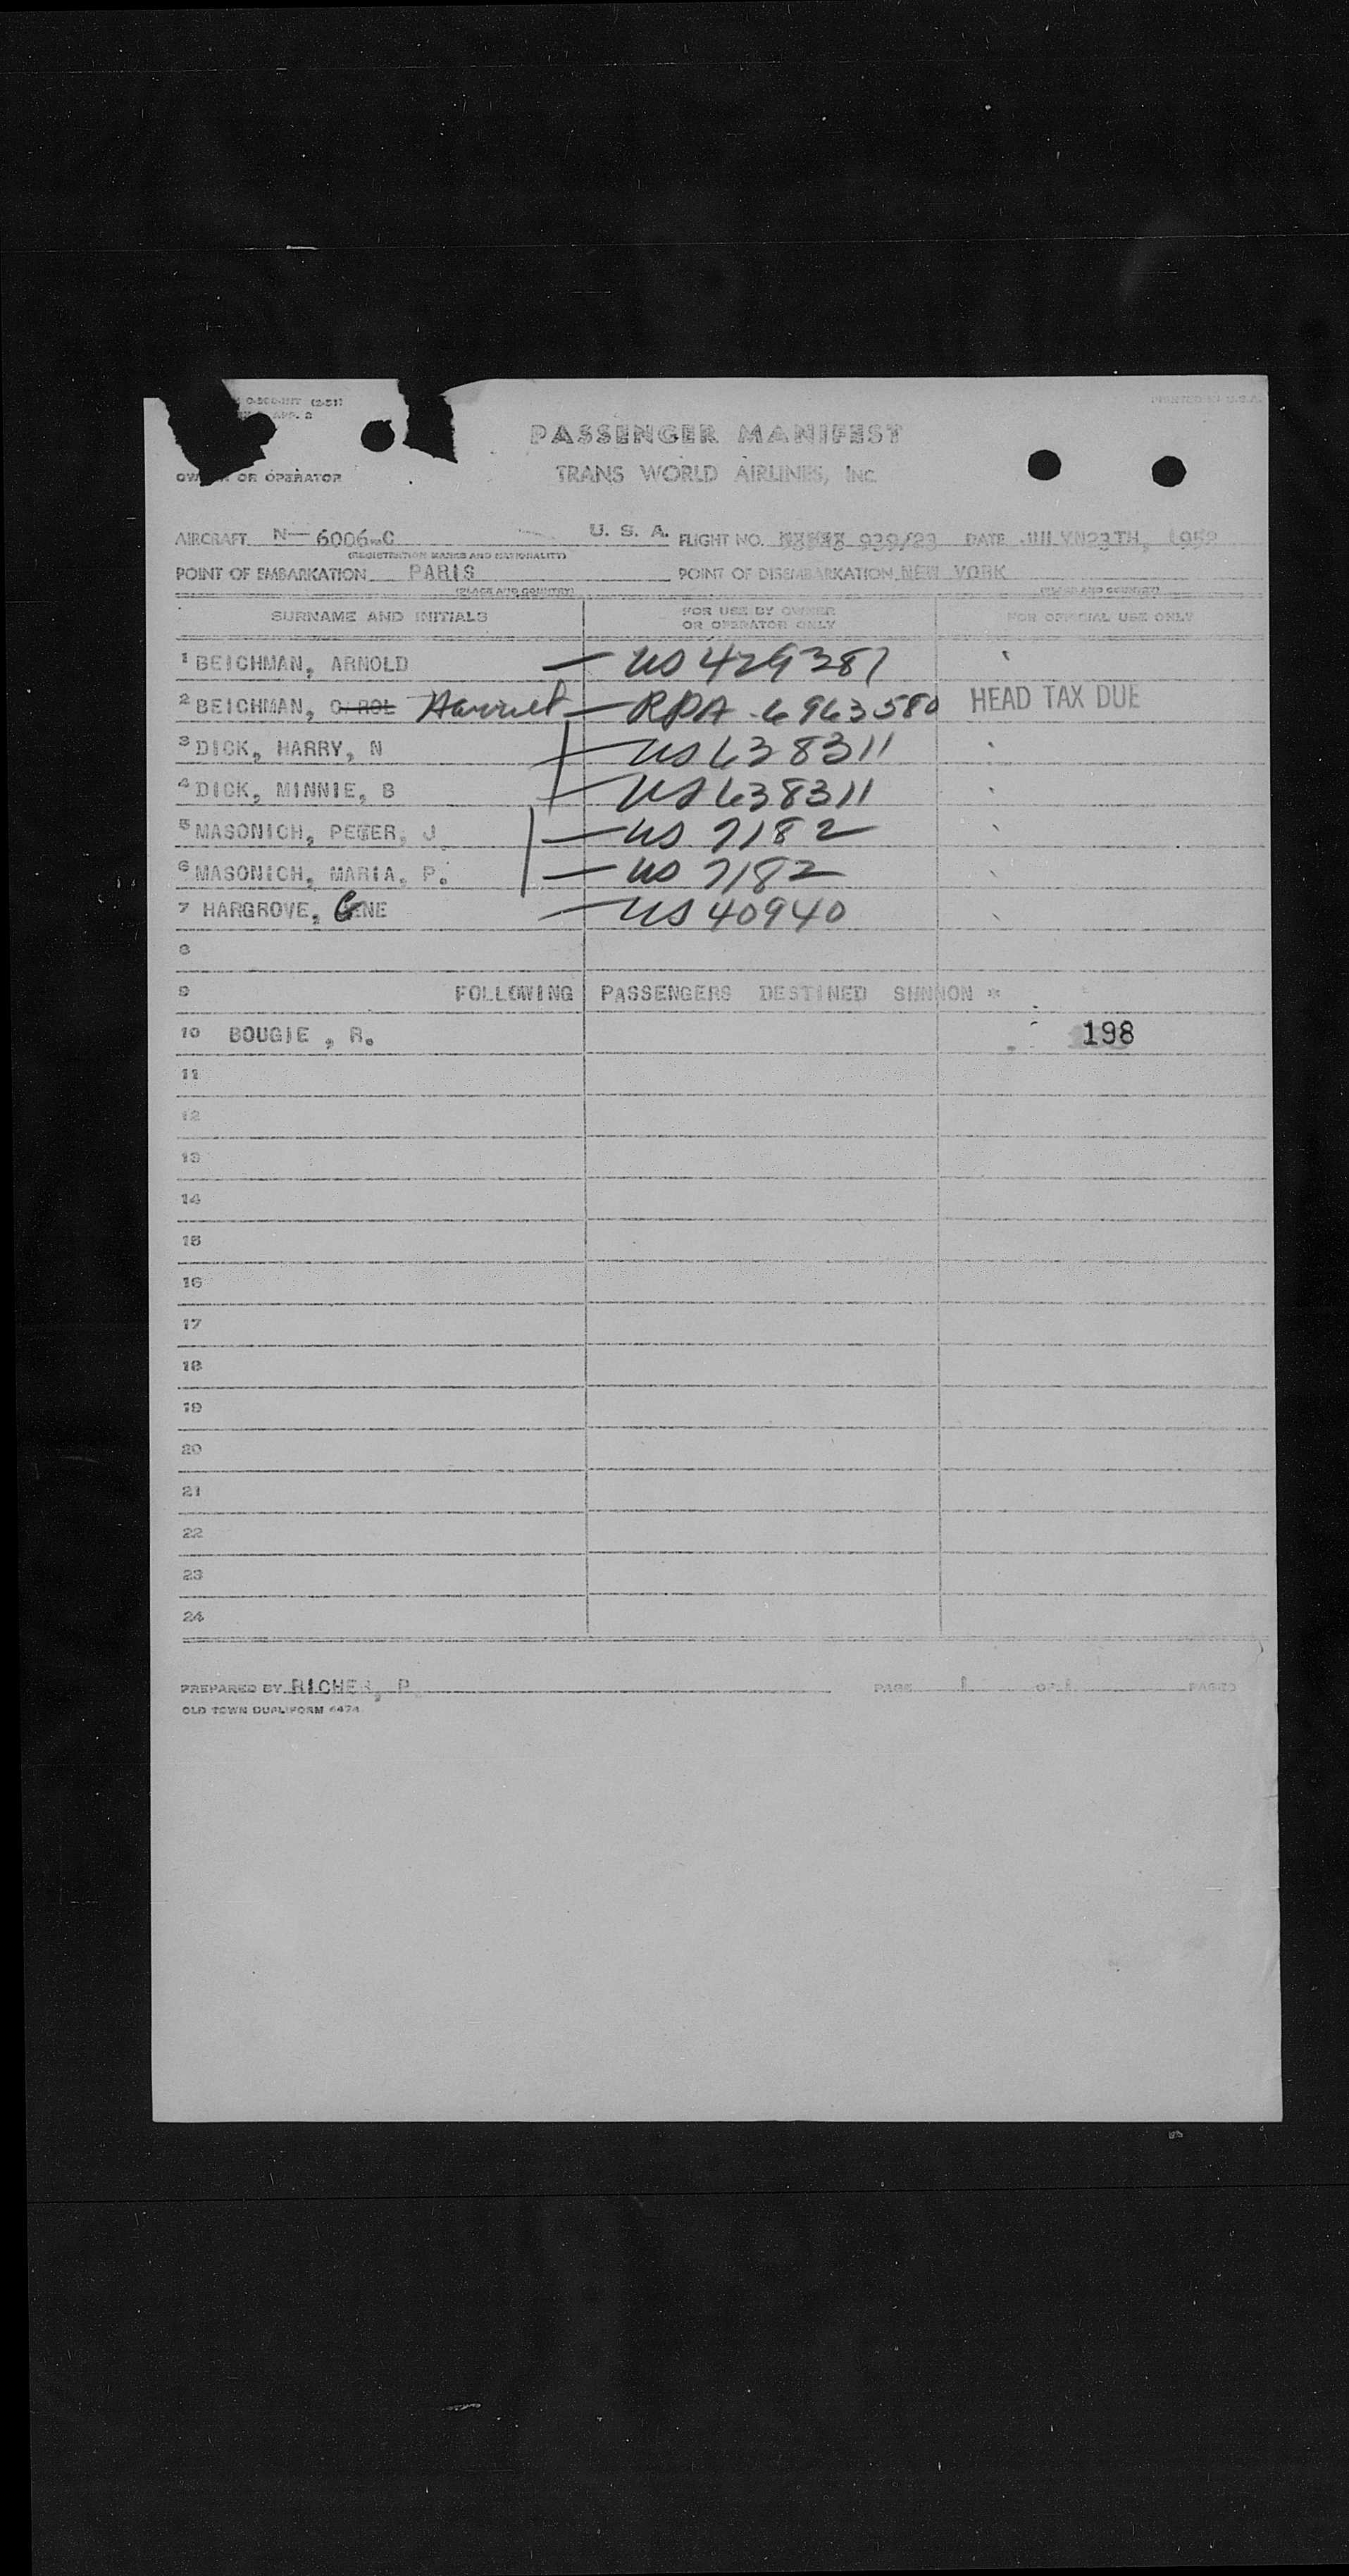 (2-51)
PRINTED IN U.S.A.
PASSENGER MANIFEST
OR OPERATOR
TRANS WORLD AIRLINES, INC.
AIRCRAFT N— 6006-C U. S. A. FLIGHT NO. 939/23 DATE JULYN23TH, 1952
(REGISTRATION MARKS AND NATIONALITY)
POINT OF EMBARKATION PARIS POINT OF DISEMBARKATION NEW YORK
(PLACE AND COUNTRY) (PLACE AND COUNTRY)
SURNAME AND INITIALS FOR USE BY OWNER OR OPERATOR ONLY FOR OFFICIAL USE ONLY
1 BEICHMAN, ARNOLD — US 429387
2 BEICHMAN, CAROL Harriet — RPA 6963580 HEAD TAX DUE
3 DICK, HARRY, N — US 638311
4 DICK, MINNIE, B — US 638311
5 MASONICH, PETER, J — US 7182
6 MASONICH, MARIA, P. — US 7182
7 HARGROVE, GENE — US 40940
8
9 FOLLOWING PASSENGERS DESTINED SHNNON *
10 BOUGIE , R. 198
11
12
13
14
15
16
17
18
19
20
21
22
23
24
PREPARED BY RICHER, P. PAGE 1 OF 1 PAGES
OLD TOWN DUPLIFORM 6474